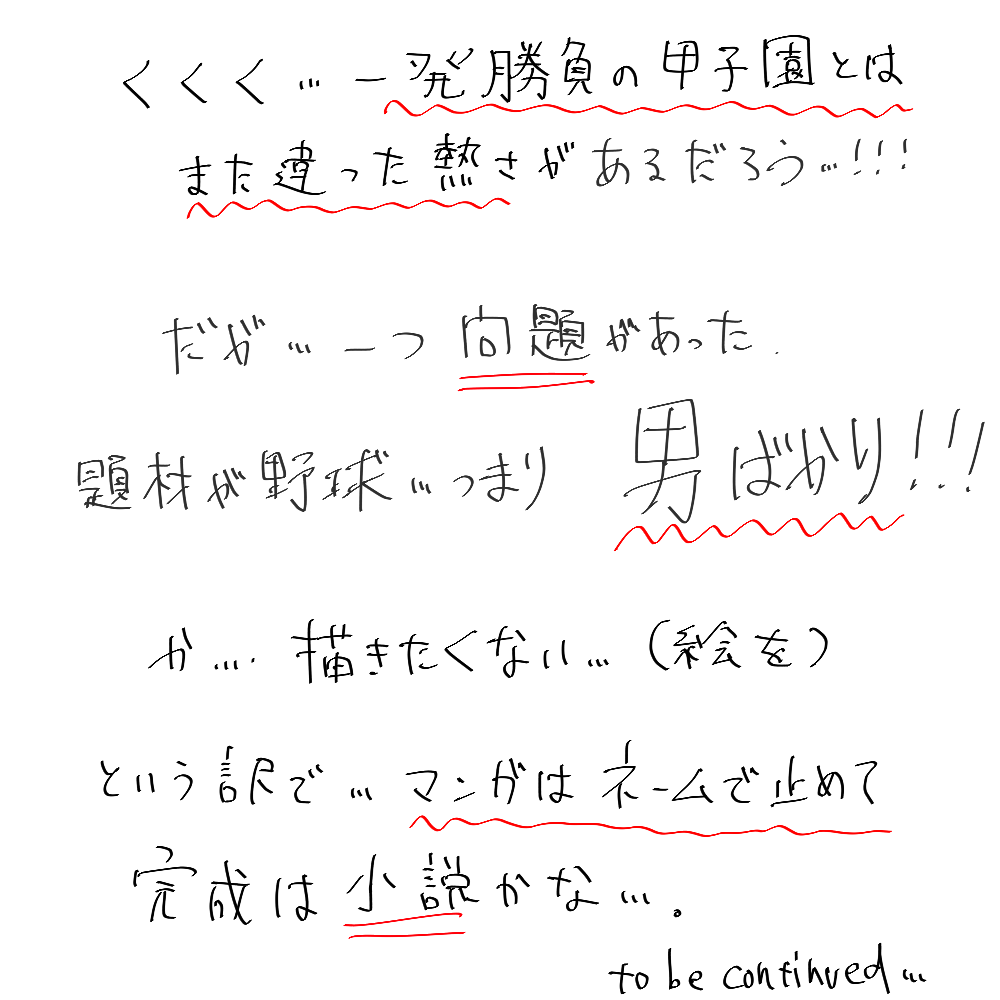 くくく…一発勝負の甲子園とは
また違った熱さがあるだろう…!!!
だが…一つ問題があった.
題材が野球…つまり 男ばかり!!!
か…. 描きたくない…(絵を)
という訳で…マンガはネームで止めて
完成は小説かな…。
to be continued…